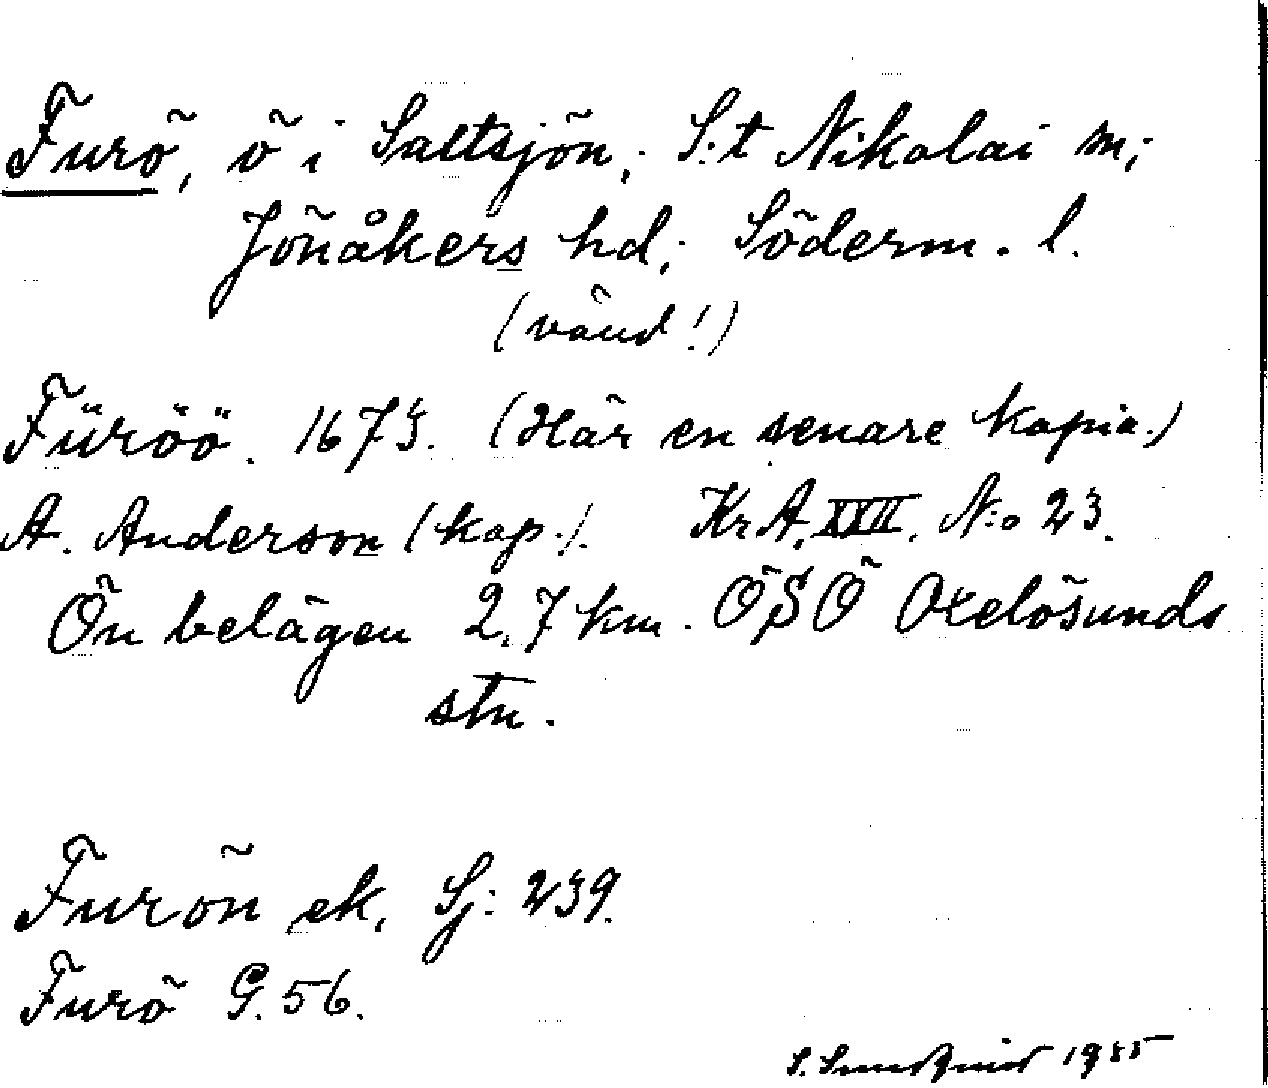 Furö, ö i Saltsjön; S:t Nikolai sn;
Jönåkers hd; Söderm. l.
(vänd!)
Füröö. 1673. (Här en senare kopia.)
A. Anderson (kop.). KrA, XXII, N:o 23.
Ön belägen 2,7 km. ÖSÖ Oxelösunds
stn.
Furön ek. Sj: 239.
Furö G. 56.
S. 1935